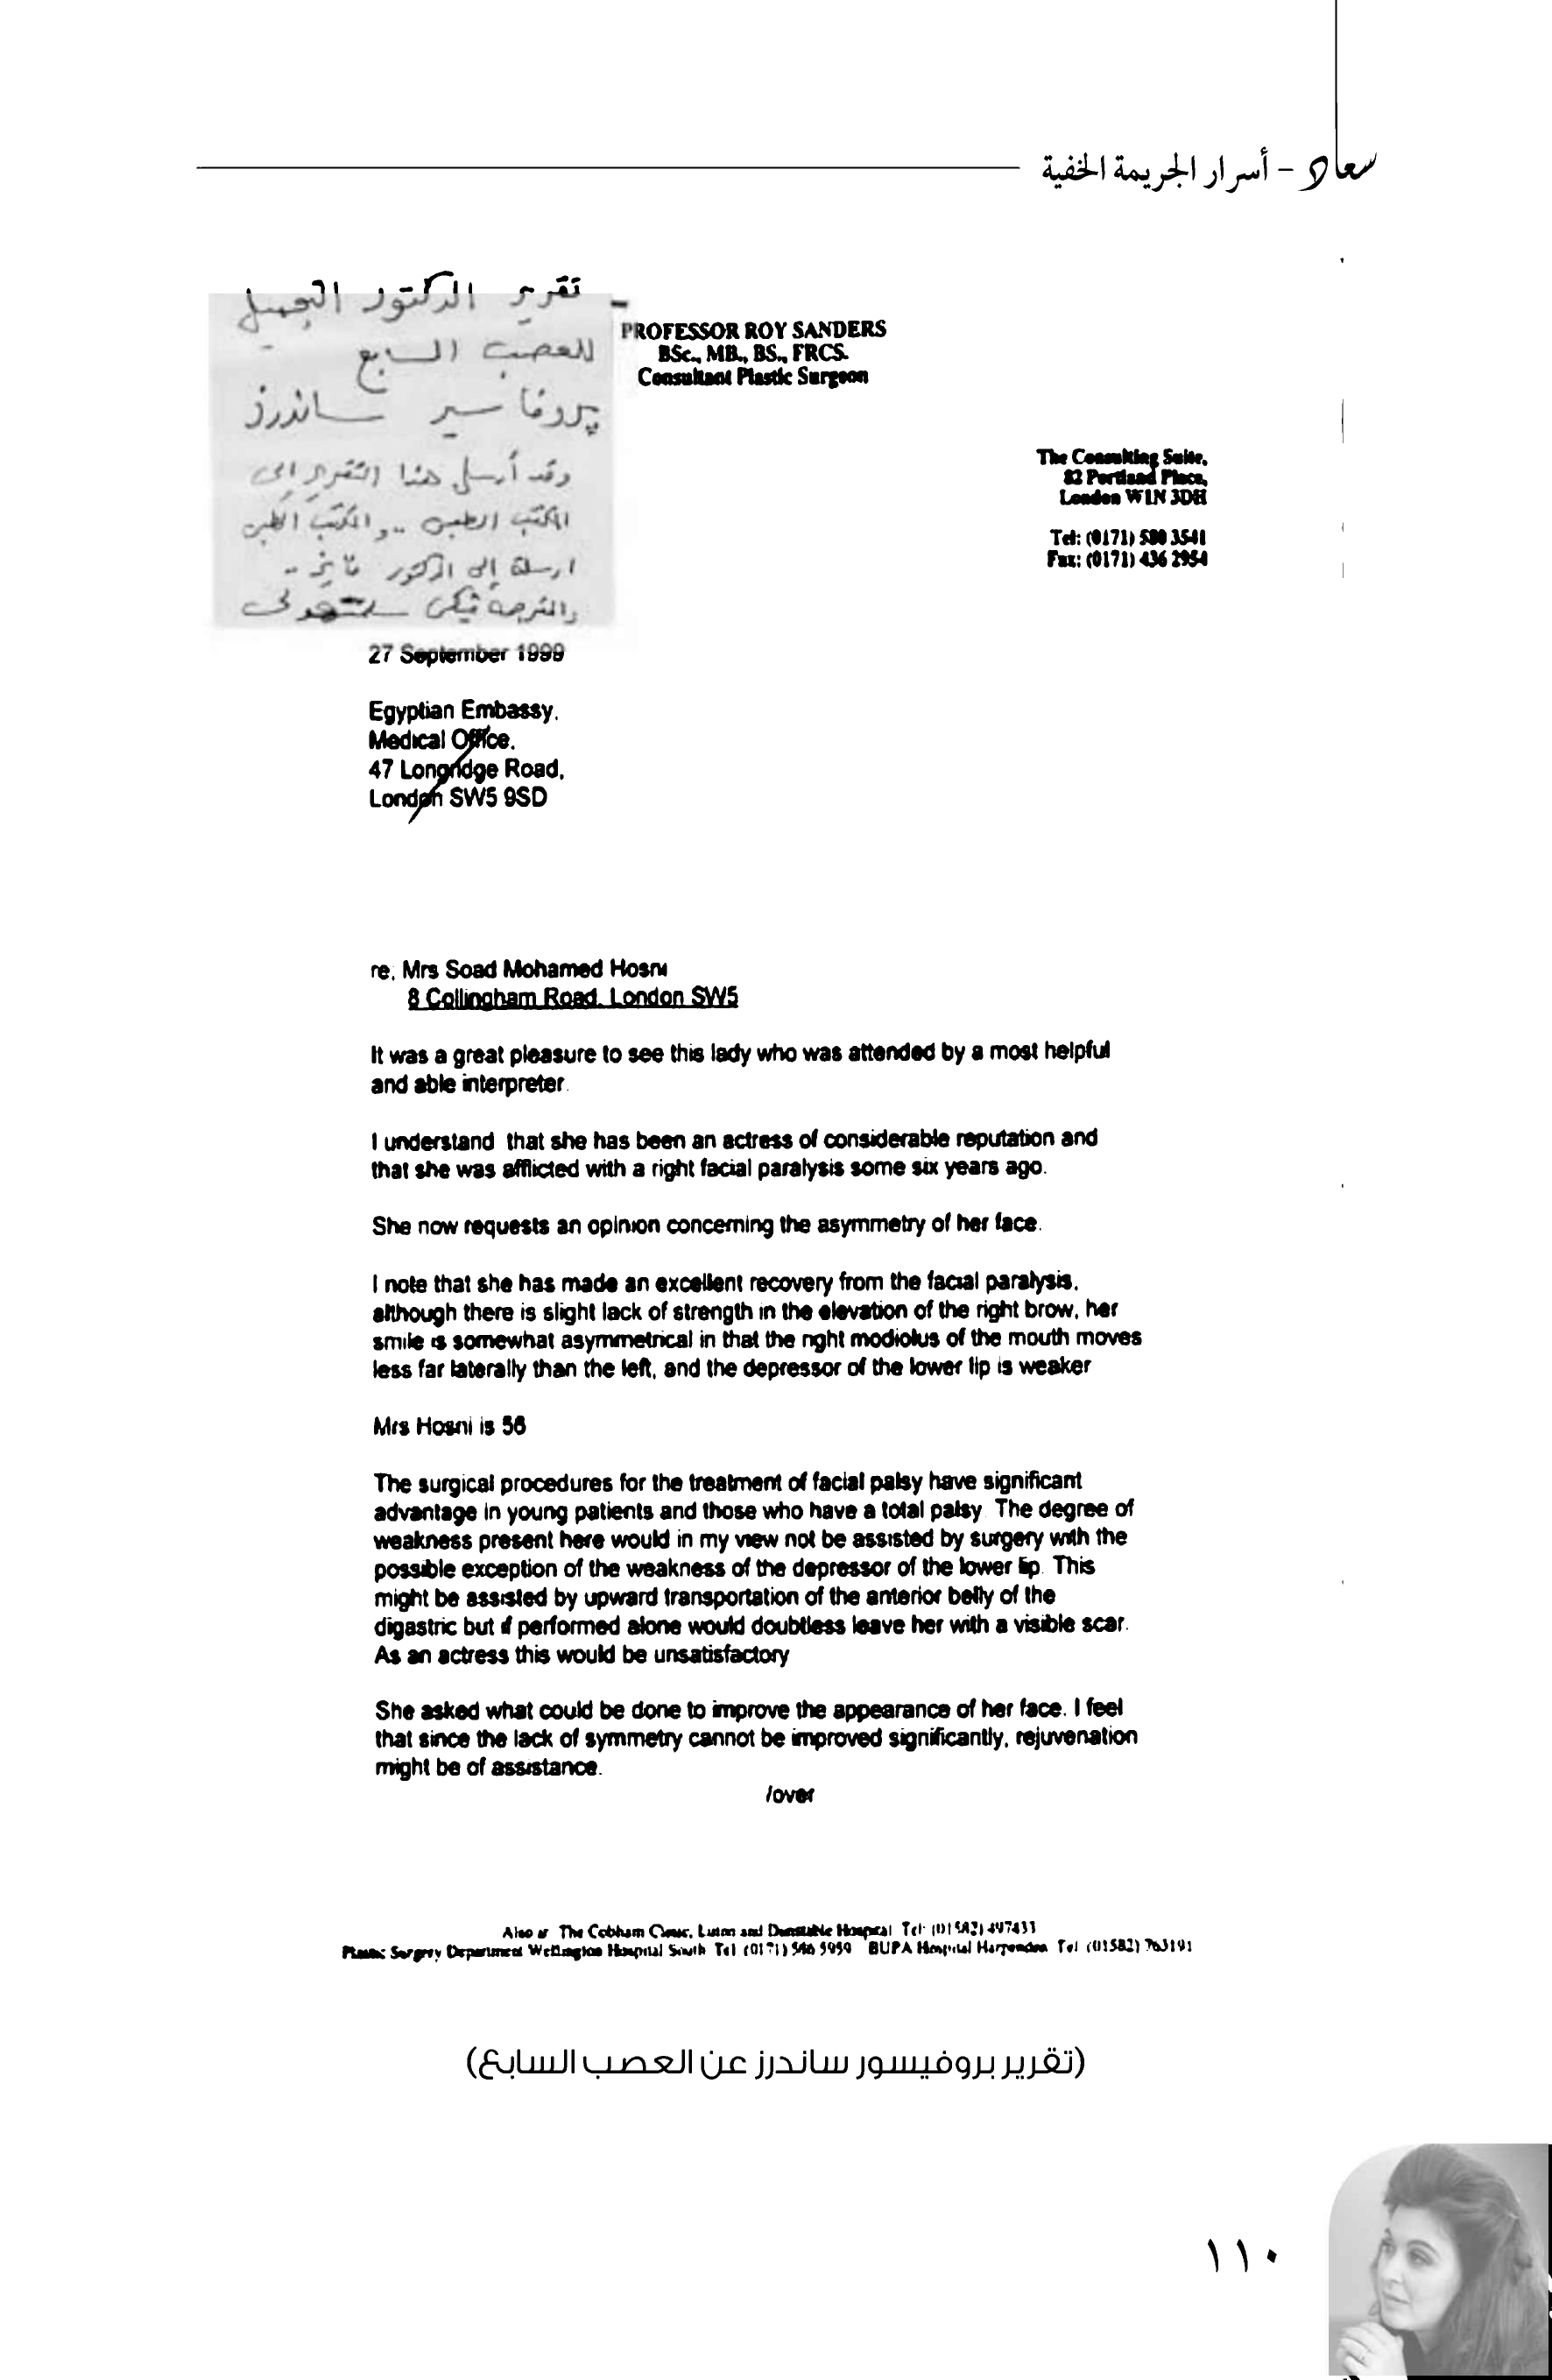 سعاد - أسرار الجريمة الخفية
تقرير الدكتور التجميل
للعصب السابع
بروفاسير ساندرز
وقد أرسل هذا التقرير إلى
المكتب الطبى .. والمكتب الطبى
ارسلة إلى الدكتور
والترجمة
PROFESSOR ROY SANDERS
BSc., MB., BS., FRCS.
Consultant Plastic Surgeon
The Consulting Suite,
82 Portland Place,
London W1N 3DH
Tel: (0171) 580 3541
Fax: (0171) 436 2954
27 September 1999
Egyptian Embassy,
Medical Office,
47 Longridge Road,
London SW5 9SD
re: Mrs Soad Mohamed Hosni
8 Collingham Road, London SW5
It was a great pleasure to see this lady who was attended by a most helpful
and able interpreter.
I understand that she has been an actress of considerable reputation and
that she was afflicted with a right facial paralysis some six years ago.
She now requests an opinion concerning the asymmetry of her face.
I note that she has made an excellent recovery from the facial paralysis,
although there is slight lack of strength in the elevation of the right brow, her
smile is somewhat asymmetrical in that the right modiolus of the mouth moves
less far laterally than the left, and the depressor of the lower lip is weaker
Mrs Hosni is 56
The surgical procedures for the treatment of facial palsy have significant
advantage in young patients and those who have a total palsy. The degree of
weakness present here would in my view not be assisted by surgery with the
possible exception of the weakness of the depressor of the lower lip. This
might be assisted by upward transportation of the anterior belly of the
digastric but if performed alone would doubtless leave her with a visible scar.
As an actress this would be unsatisfactory
She asked what could be done to improve the appearance of her face. I feel
that since the lack of symmetry cannot be improved significantly, rejuvenation
might be of assistance.
/over
Also at The Cobham Clinic, Luton and Dunstable Hospital Tel: (01582) 497433
Plastic Surgery Department Wellington Hospital South Tel (0171) 586 5959 BUPA Hospital Harpenden Tel (01582) 763191
(تقرير بروفيسور ساندرز عن العصب السابع)
١١٠